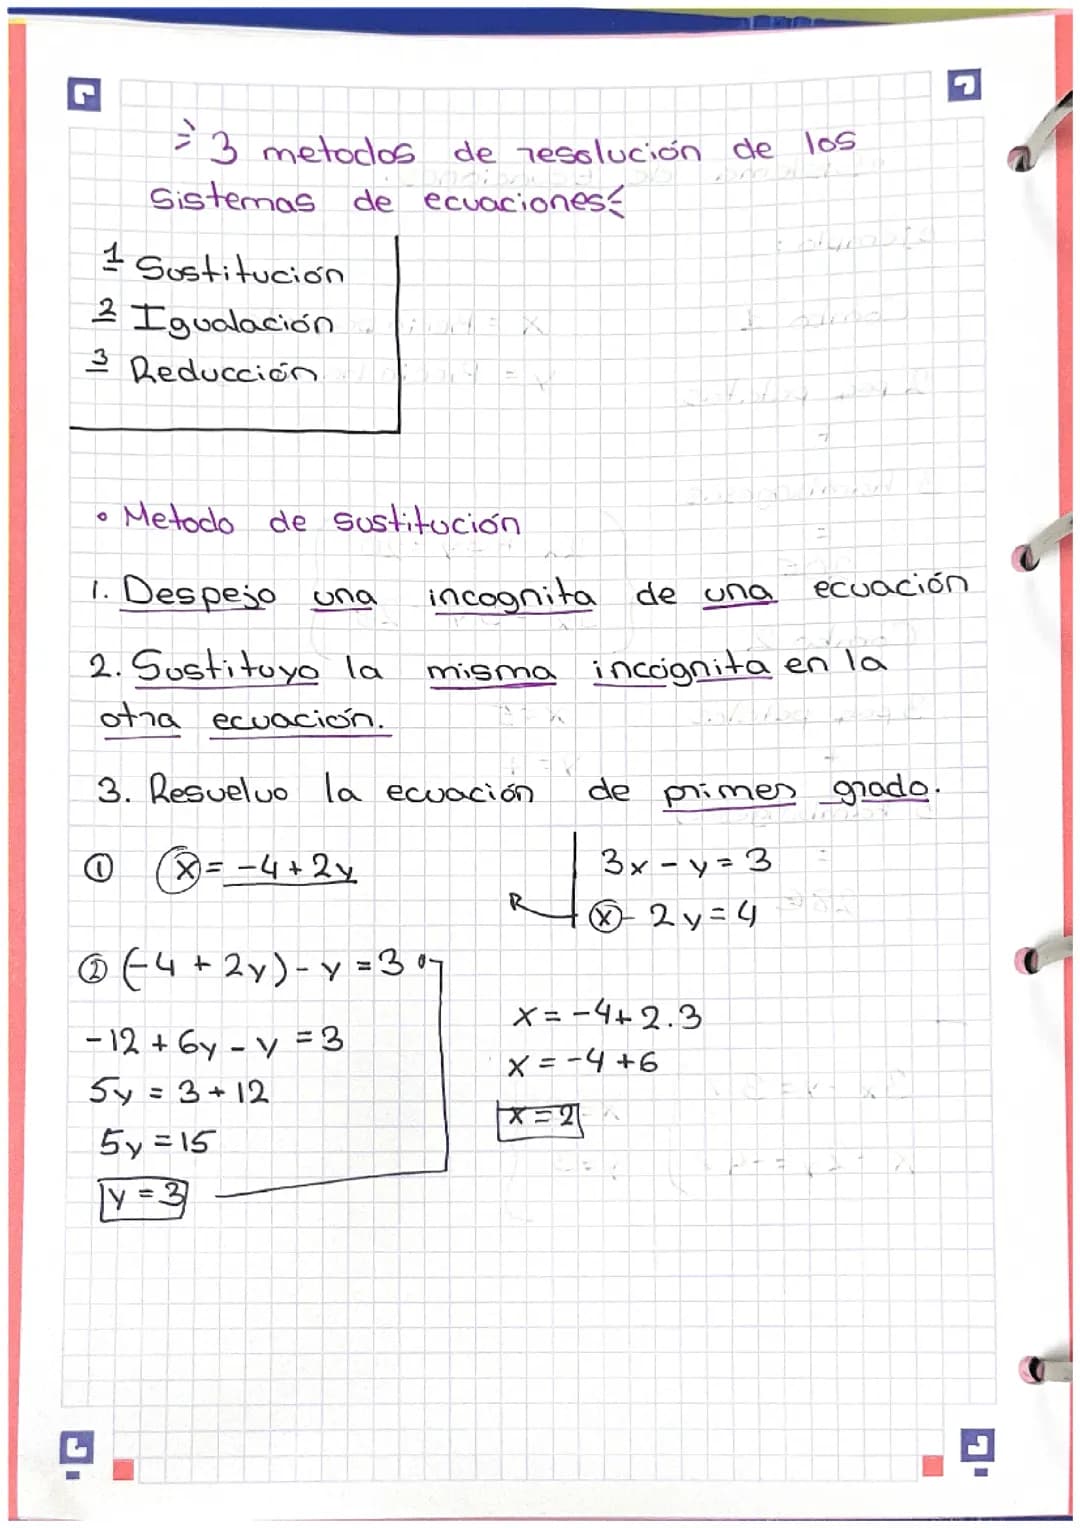 3 metodos de resolución de los
sistemas de ecuaciones
1 Sustitución
2 Igualación
3 Reducción
• Metodo de sustitución
1. Despejo una incognita de una ecuación
2. Sustituyo la misma incógnita en la
otra ecuación.
3. Resuelvo la ecuación de primer grado.
① x = -4 + 2y
3x - y = 3
R x - 2y = 4
② (-4 + 2y) - y = 3
-12 + 6y - y = 3
5y = 3 + 12
5y = 15
y = 3
x = -4 + 2.3
x = -4 + 6
x = 2